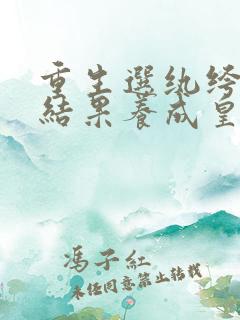 重生選紈绔
結果養成皇
馮子紅
未任同意禁止轉載